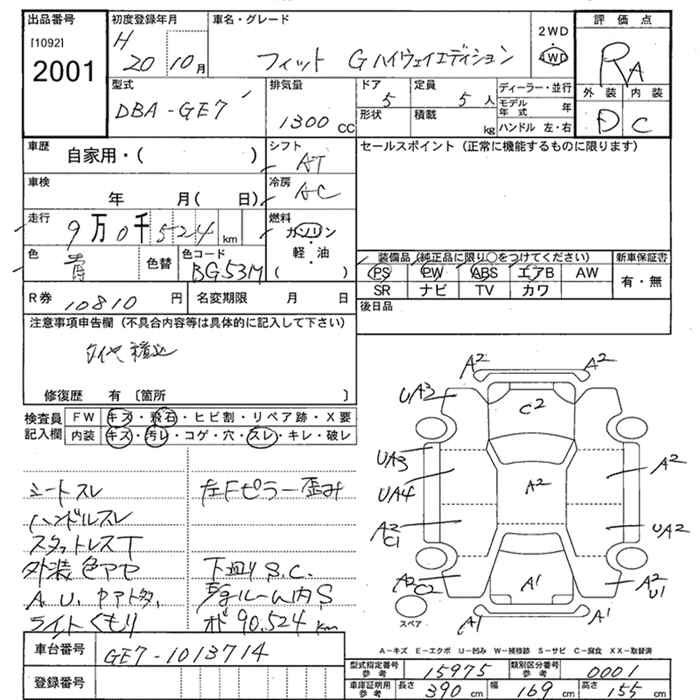 出品番号 初度登録年月 車名・グレード 2WD 評価点
[1092] H 4WD
2001 20 10月 フィット Gハイウェイエディション RA
型式 排気量 ドア 定員 ディーラー・並行 外装 内装
DBA-GE7 5 5人 モデル年式 年 D C
1300cc 形状 積載 kg ハンドル 左・右
車歴 シフト セールスポイント (正常に機能するものに限ります)
自家用・( ) AT
車検 冷房
年 月( 日) AC
走行 燃料
9万0千524km ガソリン
色 色替 色コード 軽・油 装備品(純正品に限り○をつけてください) 新車保証書
青 BG53M ( ) PS PW ABS エアB AW 有・無
R券 10810円 名変期限 月 日 SR ナビ TV カワ
注意事項申告欄 (不具合内容等は具体的に記入して下さい) 後日品
タイヤ積込
修復歴 有 〔箇所 〕
検査員 FW キズ・飛石・ヒビ割・リペア跡・X要
記入欄 内装 キズ・汚レ・コゲ・穴・スレ・キレ・破レ
A2 A2
UA3 C2
UA3 A2
UA4 A2
A2 C1 UA2
A2 C2 A1 A2 U1
A1 A1
スペア
シートスレ 左Fピラー歪み
ハンドルスレ
スタットレスT
外装色アセ 下廻りS.C.
A.U.ヤアト多. 
ライトくもり 90,524km
A-キズ E-エクボ U-凹み W-補修跡 S-サビ C-腐食 XX-取替済
車台番号 GE7-1013714
登録番号
型式指定番号 参考 15975 類別区分番号 参考 0001
車庫証明用 参考 長さ 390cm 幅 169cm 高さ 155cm